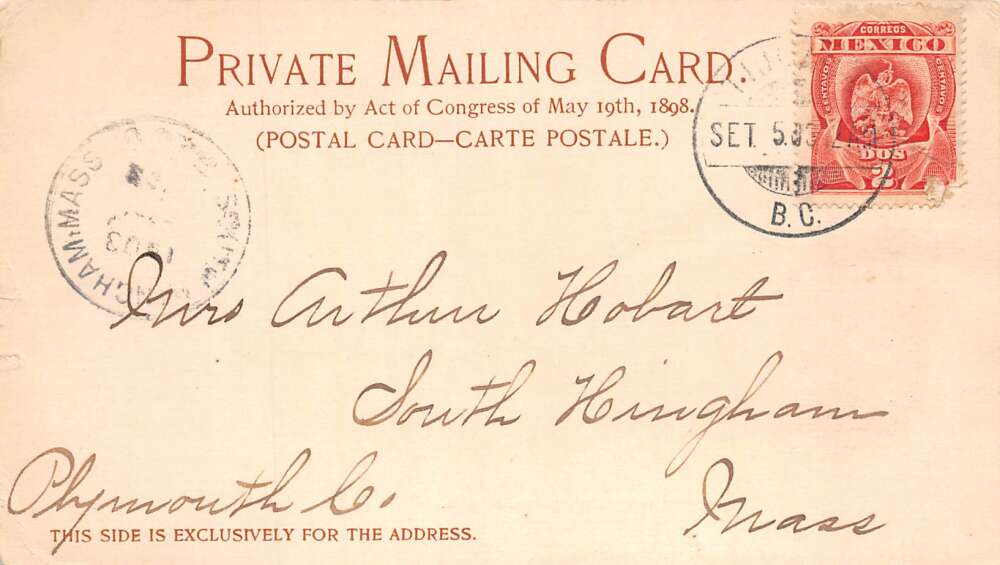 PRIVATE MAILING CARD.
Authorized by Act of Congress of May 19th, 1898.
(POSTAL CARD—CARTE POSTALE.)
CORREOS
MEXICO
CENTAVOS
CENTAVOS
DOS
2
SET 5.03
B.C.
SOUTH HINGHAM MASS
1903
Mrs Arthur Hobart
South Hingham
Plymouth Co.
Mass
THIS SIDE IS EXCLUSIVELY FOR THE ADDRESS.